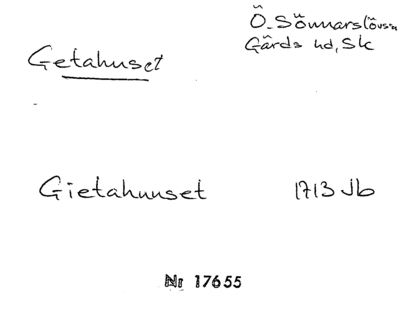 Getahuset
Ö. Sönnarslövs sn
Gärds hd, Sk
Gietahuuset 1713 Jb
Nr 17655